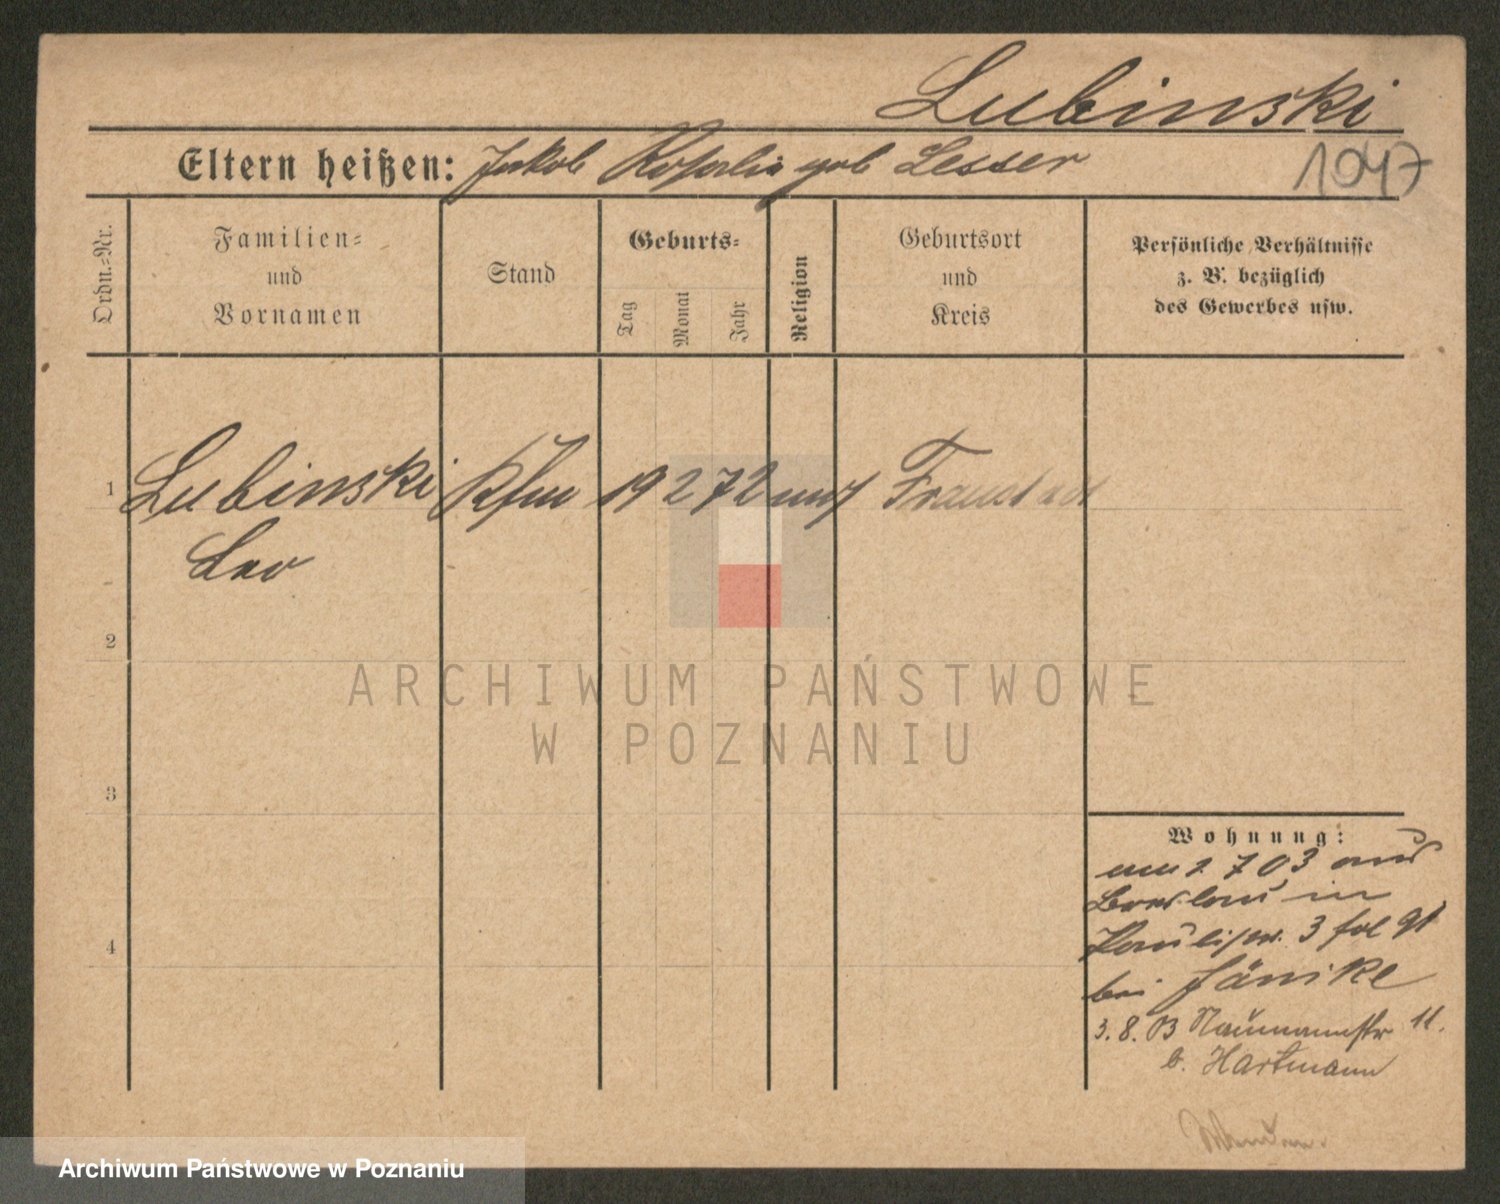 Lubinski
Eltern heißen: Jakob Rosalie geb Lesser
1047
Ordn.-Nr.
Familien-
und
Vornamen
Stand
Geburts-
Tag
Monat
Jahr
Religion
Geburtsort
und
Kreis
Persönliche Verhältnisse
z. B. bezüglich
des Gewerbes usw.
1 Lubinski Kfm 19 2 72 mos Fraustadt
Leo
2
ARCHIWUM PAŃSTWOWE
W POZNANIU
3
4
Wohnung:
am 2 7 03 aus
Breslau in
3
bei Jänike
3. 8. 03 Naumannstr 11.
b. Hartmann
Archiwum Państwowe w Poznaniu